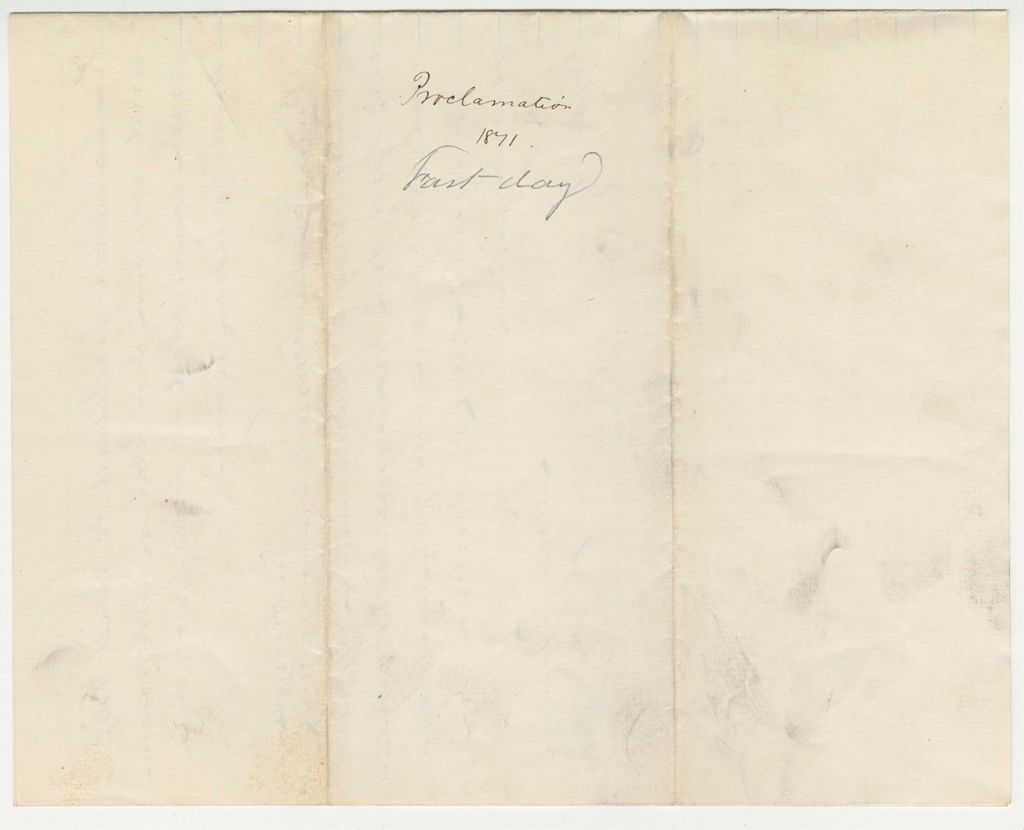 Proclamation
1871.
Fast day